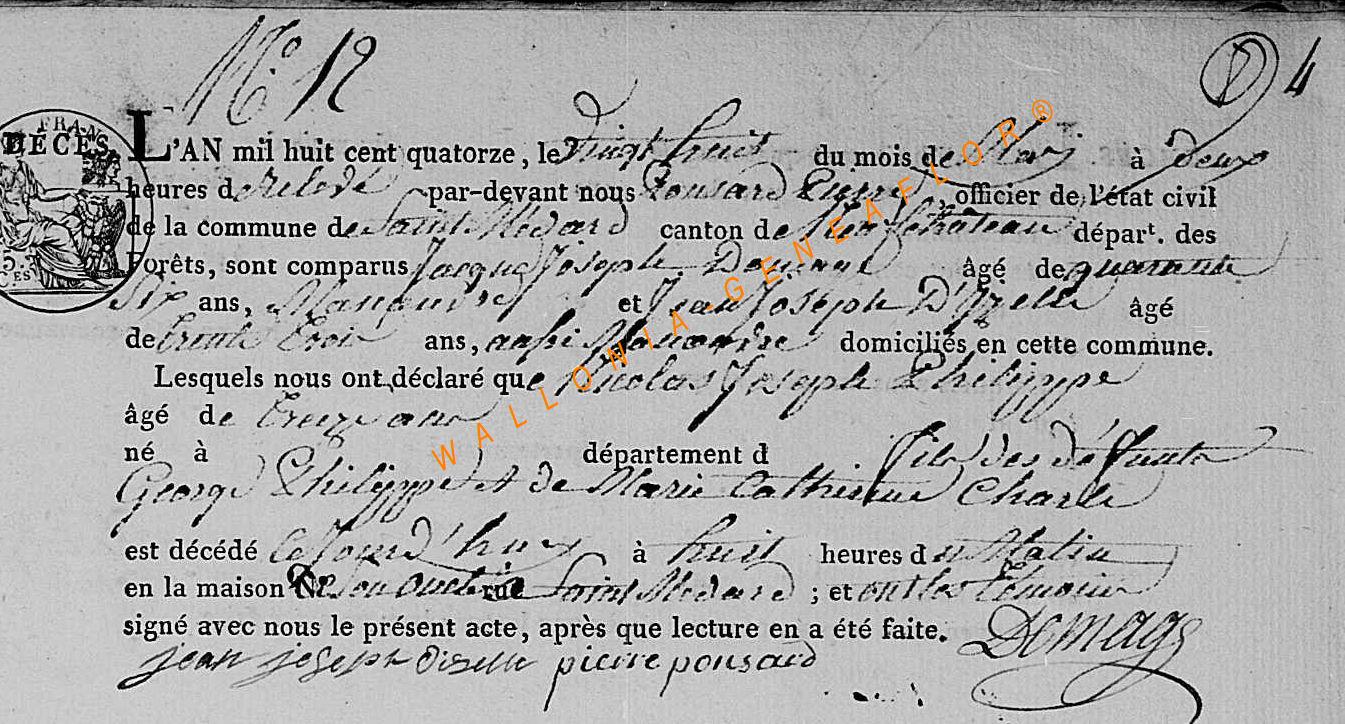 N.º 12
4
FRAN
DÉCÈS. L'AN mil huit cent quatorze, le vingt huit du mois de à deux
heures de Relevé par-devant nous Ponsard Pierre, officier de l'état civil
de la commune de Saint Médard canton de Neufchâteau départ. des
Forêts, sont comparus Jacque Joseph âgé de quarante
Six ans, Manœuvre et Jean Joseph D'Izelle âgé
de trente trois ans, aussi Manœuvre domiciliés en cette commune.
Lesquels nous ont déclaré que Nicolas Joseph Philippe
âgé de treize ans
né à département d fils des défunts
George Philippe et de Marie Catherine Charle
est décédé à huit heures du Matin
en la maison De son rue Saint Médard ; et ont les témoins
signé avec nous le présent acte, après que lecture en a été faite.
jean joseph dizelle pierre ponsard
WALLONIA-GENEAFLOR®